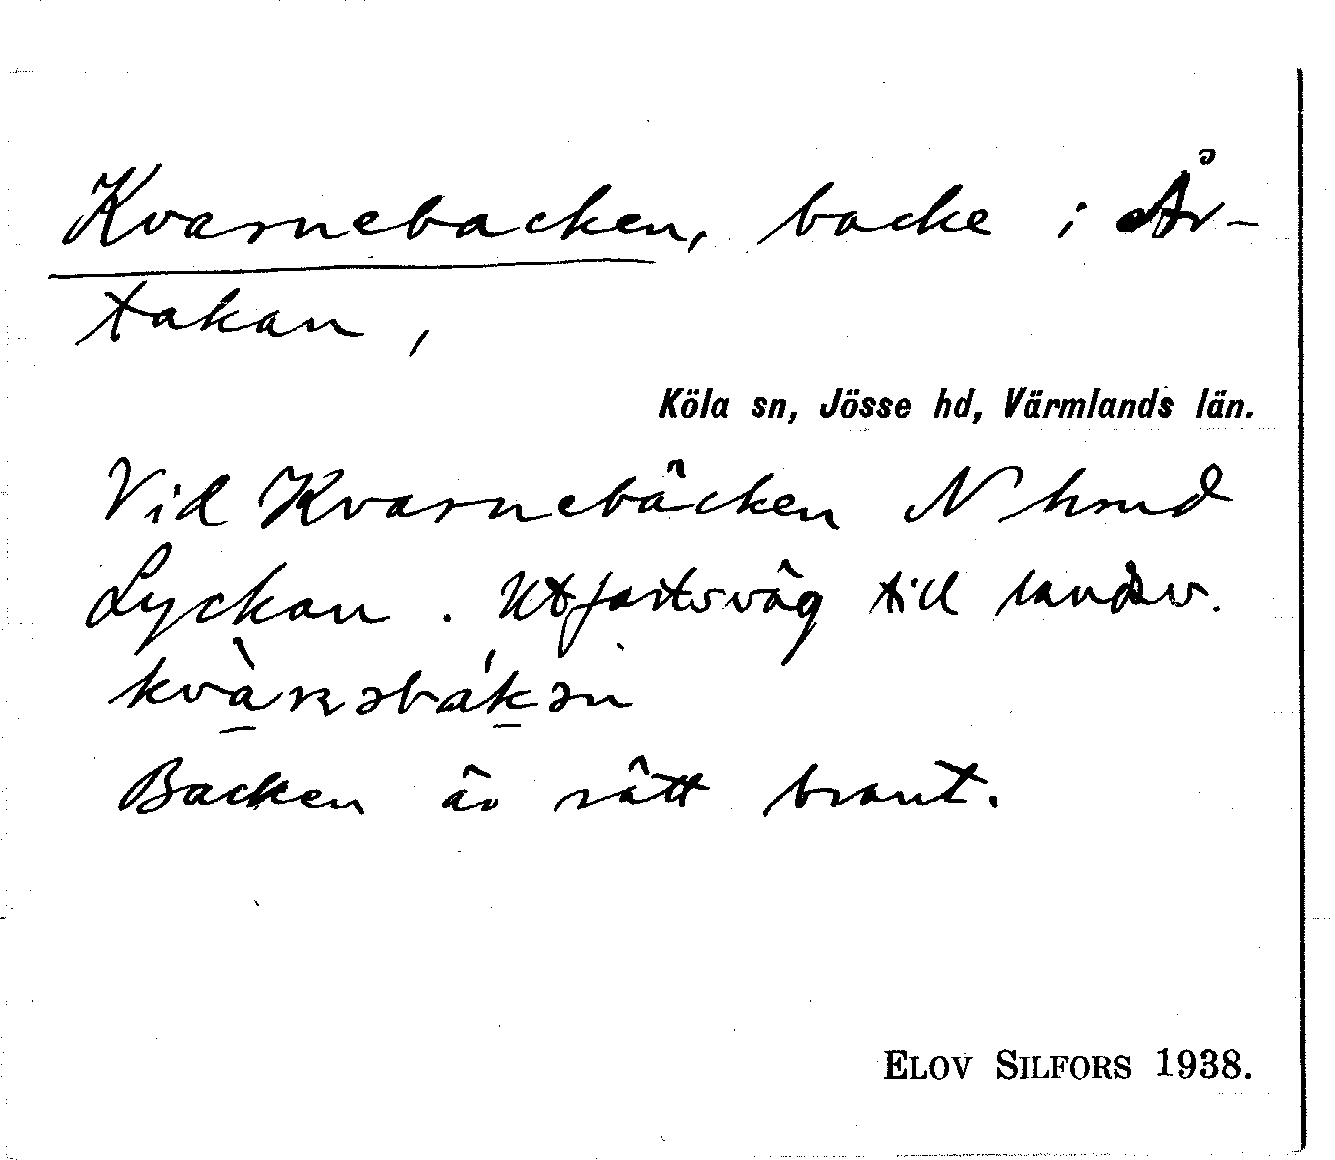 Kvarnebacken, backe i År-
takan,
Köla sn, Jösse hd, Värmlands län.
Vid Kvarnebäcken N hmd
Lyckan. Utfartsväg till landsv.
Backen är rätt brant.
ELOV SILFORS 1938.